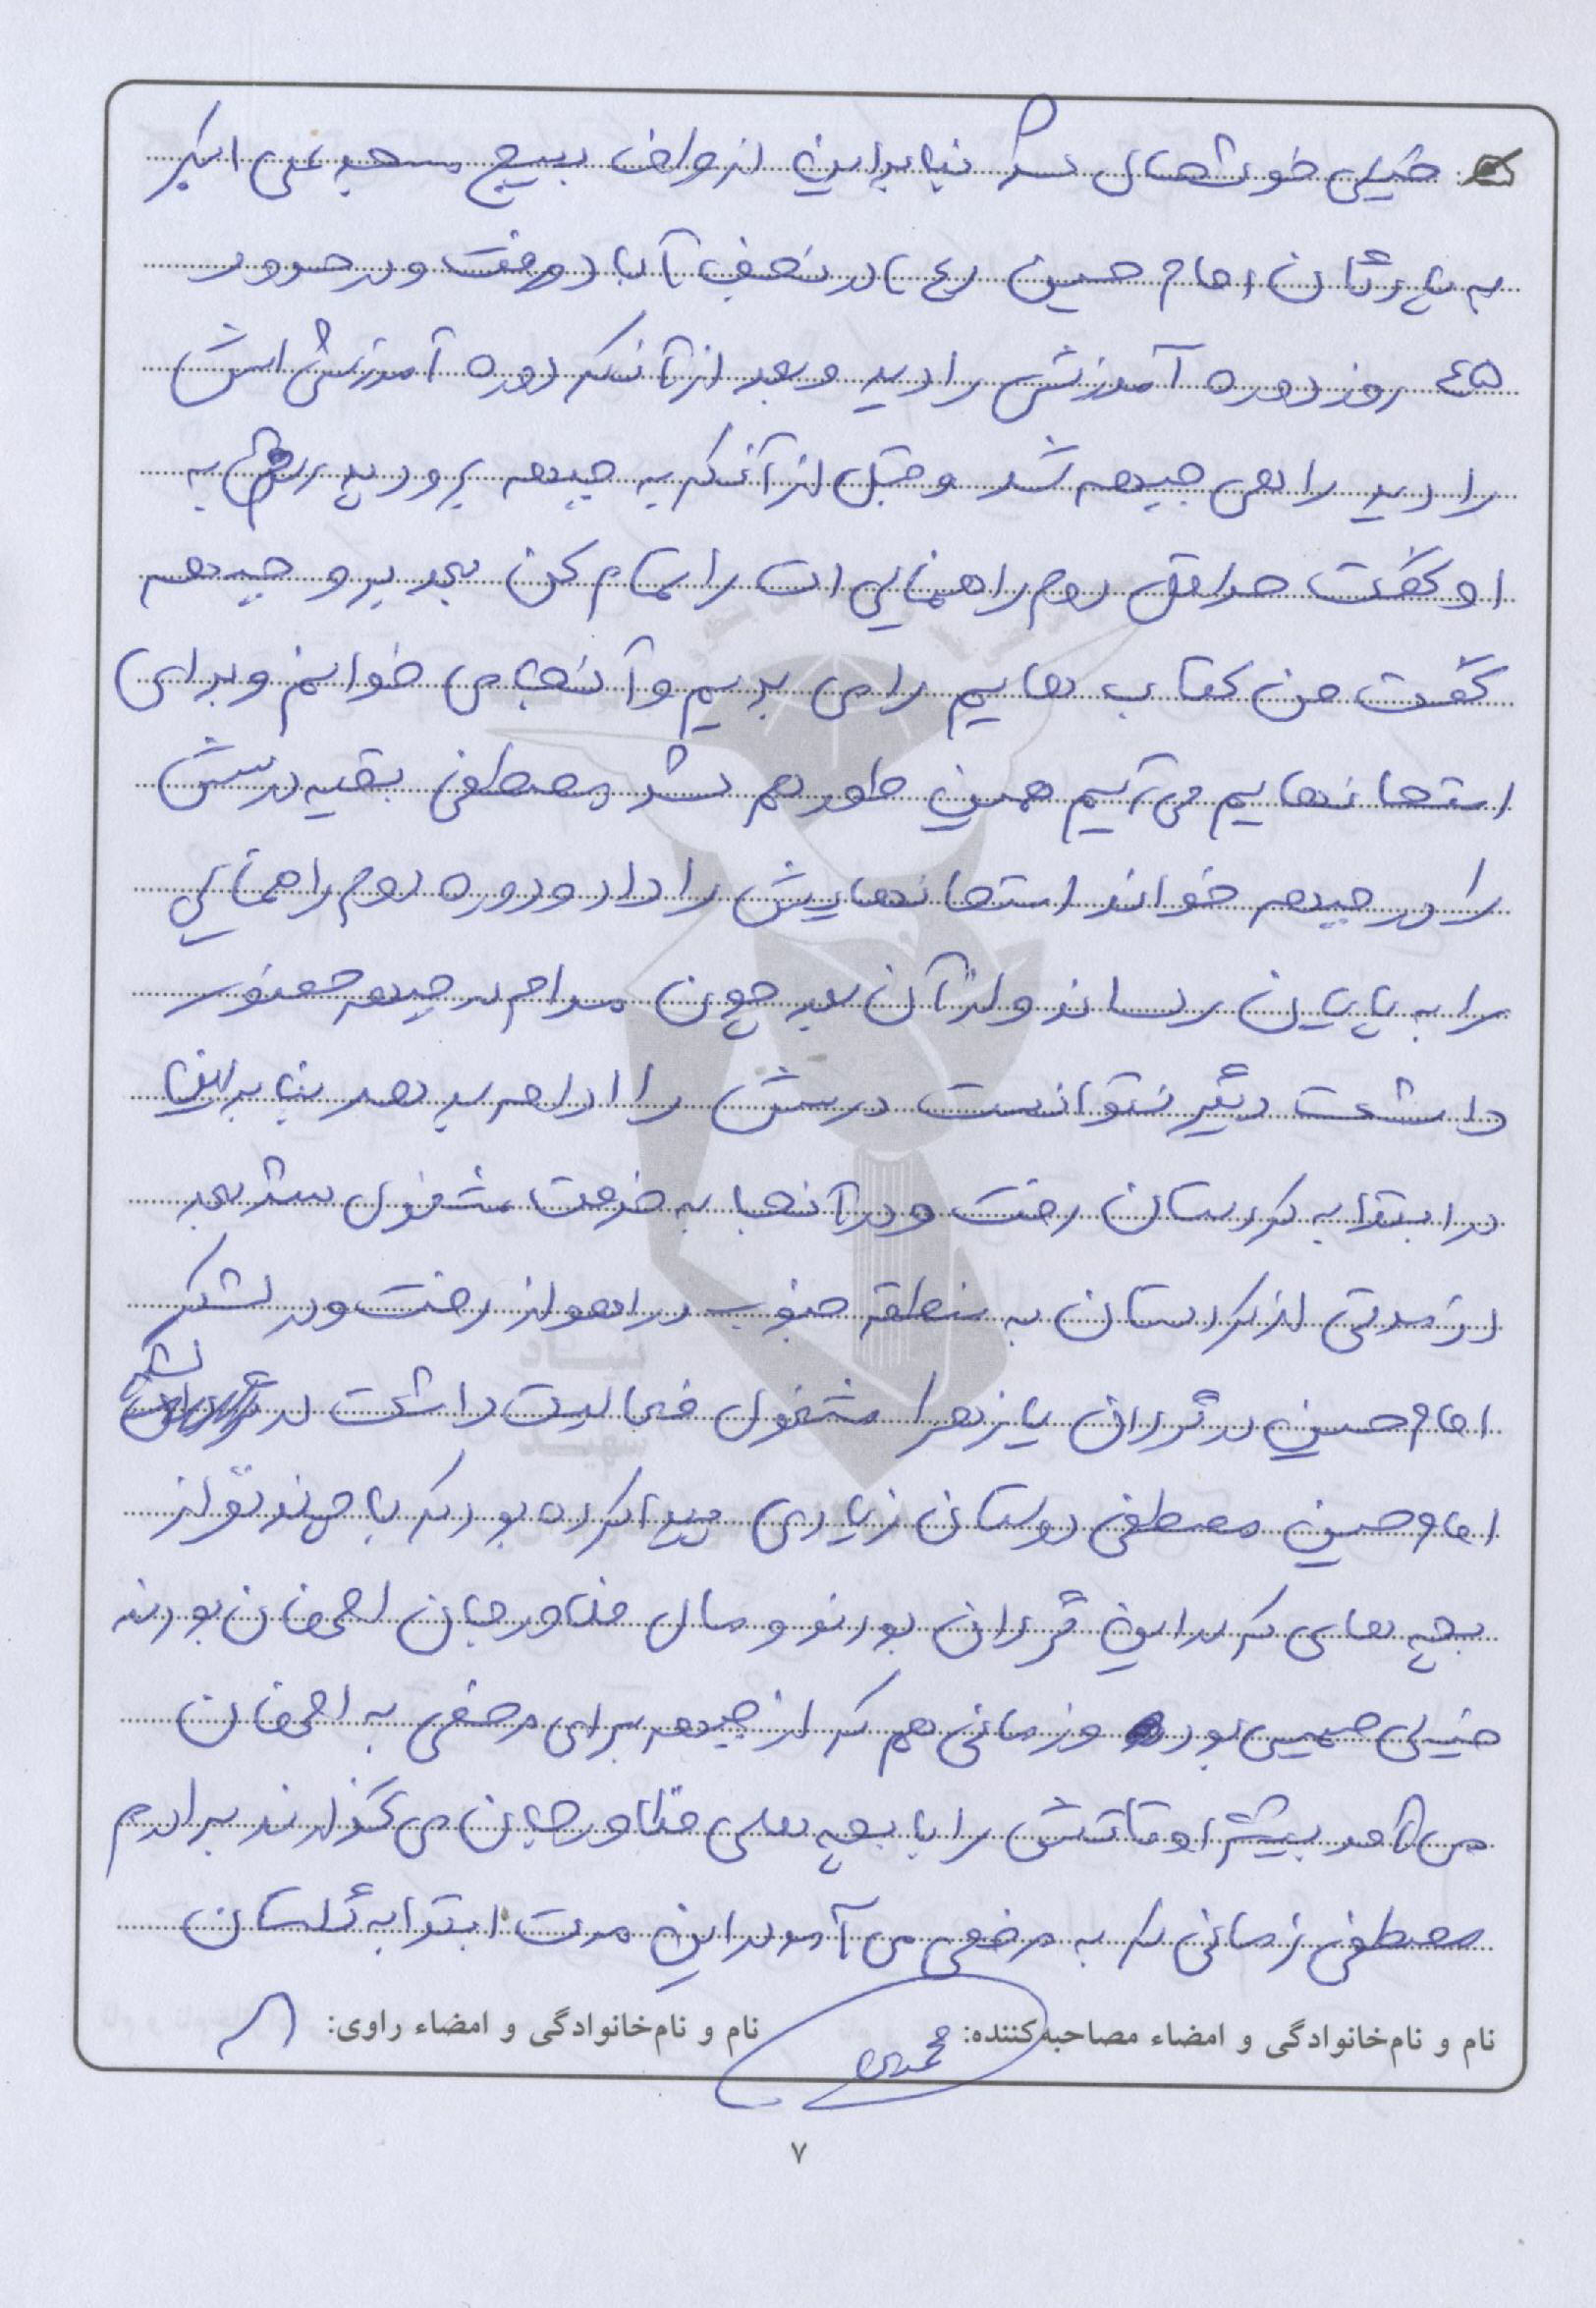 خیلی خوشحال شد بنابراین از طرف بسیج مسجد علی اکبر
به پادگان امام حسین (ع) در نجف آباد رفت و در حدود
۴۵ روز دوره آموزش را دید و بعد از آنکه دوره آموزشی اش
را دید راهی جبهه شد و قبل از آنکه به جبهه برود پدرش به
او گفت حداقل دوم راهنمایی ات را تمام کن بعد برو جبهه
گفت من کتاب هایم را می بریم و آنجا می خوانم و برای
امتحانهایم می آیم همین طور هم شد مصطفی بقیه درسش
را در جبهه خواند امتحانهایش را داد و دوره دوم راهنمایی
را به پایان رساند و از آن بعد چون مدام در جبهه حضور
داشت دیگر نتوانست درسش را ادامه بدهد بنابراین
در ابتدا به کردستان رفت و در آنجا به خدمت مشغول شد بعد
از مدتی از کردستان به منطقه جنوب در اهواز رفت و در لشکر
امام حسین در گردان یا زهرا مشغول فعالیت داشت در لشکر
امام حسین مصطفی دوستان زیادی پیدا کرده بود که با چند نفر از
بچه های که در این گردان بودند و مال فلاورجان اصفهان بودند
خیلی صمیمی بود و زمانی هم که از جبهه برای مرخصی به اصفهان
می آمد بیشتر اوقاتش را با بچه های فلاورجان می گذراند برادرم
مصطفی زمانی که به مرخصی می آمد در این مدت ابتدا به گلستان
نام و نام‌خانوادگی و امضاء مصاحبه‌کننده: محمدی نام و نام‌خانوادگی و امضاء راوی:
۷